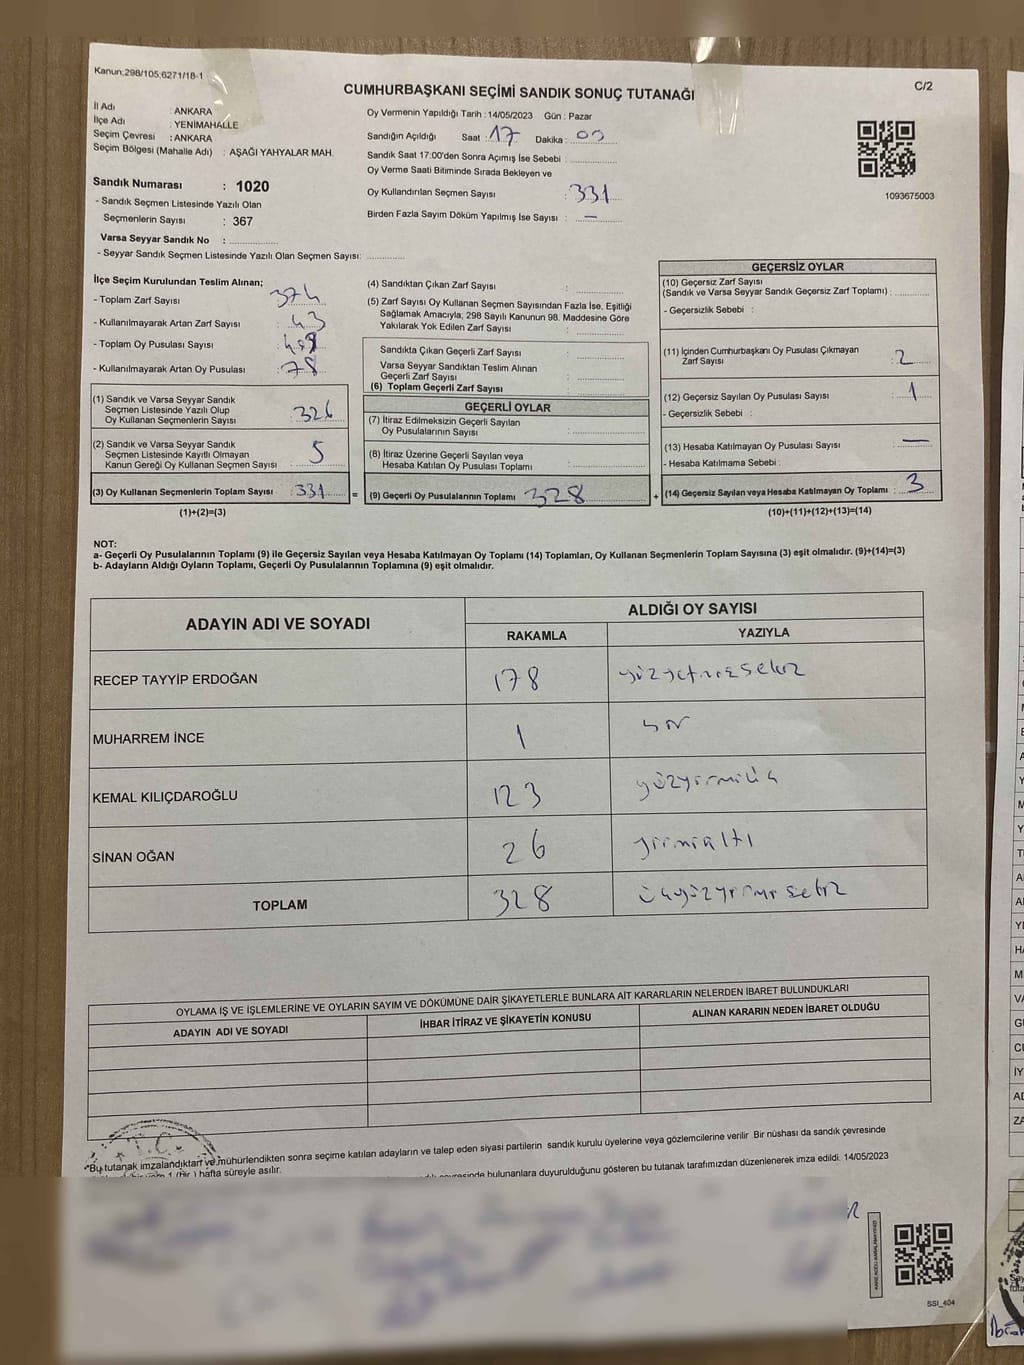 Kanun:298/105;6271/18-1
C/2
CUMHURBAŞKANI SEÇİMİ SANDIK SONUÇ TUTANAĞI
İl Adı : ANKARA
İlçe Adı : YENİMAHALLE
Seçim Çevresi : ANKARA
Seçim Bölgesi (Mahalle Adı) : AŞAĞI YAHYALAR MAH.
Sandık Numarası : 1020
- Sandık Seçmen Listesinde Yazılı Olan
Seçmenlerin Sayısı : 367
Varsa Seyyar Sandık No :
- Seyyar Sandık Seçmen Listesinde Yazılı Olan Seçmen Sayısı:
Oy Vermenin Yapıldığı Tarih : 14/05/2023 Gün : Pazar
Sandığın Açıldığı Saat : 17 Dakika : 00
Sandık Saat 17:00'den Sonra Açımış İse Sebebi :
Oy Verme Saati Bitiminde Sırada Bekleyen ve
Oy Kullandırılan Seçmen Sayısı : 331
Birden Fazla Sayım Döküm Yapılmış İse Sayısı : —
1093675003
İlçe Seçim Kurulundan Teslim Alınan;
- Toplam Zarf Sayısı : 374
- Kullanılmayarak Artan Zarf Sayısı : 43
- Toplam Oy Pusulası Sayısı :
- Kullanılmayarak Artan Oy Pusulası : 78
(1) Sandık ve Varsa Seyyar Sandık
Seçmen Listesinde Yazılı Olup
Oy Kullanan Seçmenlerin Sayısı : 326
(2) Sandık ve Varsa Seyyar Sandık
Seçmen Listesinde Kayıtlı Olmayan
Kanun Gereği Oy Kullanan Seçmen Sayısı : 5
(3) Oy Kullanan Seçmenlerin Toplam Sayısı : 331 =
(1)+(2)=(3)
(4) Sandıktan Çıkan Zarf Sayısı :
(5) Zarf Sayısı Oy Kullanan Seçmen Sayısından Fazla İse, Eşitliği
Sağlamak Amacıyla, 298 Sayılı Kanunun 98. Maddesine Göre
Yakılarak Yok Edilen Zarf Sayısı :
Sandıkta Çıkan Geçerli Zarf Sayısı :
Varsa Seyyar Sandıktan Teslim Alınan
Geçerli Zarf Sayısı :
(6) Toplam Geçerli Zarf Sayısı :
GEÇERLİ OYLAR
(7) İtiraz Edilmeksizin Geçerli Sayılan
Oy Pusulalarının Sayısı :
(8) İtiraz Üzerine Geçerli Sayılan veya
Hesaba Katılan Oy Pusulası Toplamı :
(9) Geçerli Oy Pusulalarının Toplamı : 328 +
GEÇERSİZ OYLAR
(10) Geçersiz Zarf Sayısı
(Sandık ve Varsa Seyyar Sandık Geçersiz Zarf Toplamı) :
- Geçersizlik Sebebi :
(11) İçinden Cumhurbaşkanı Oy Pusulası Çıkmayan
Zarf Sayısı : 2
(12) Geçersiz Sayılan Oy Pusulası Sayısı : 1
- Geçersizlik Sebebi :
(13) Hesaba Katılmayan Oy Pusulası Sayısı : —
- Hesaba Katılmama Sebebi :
(14) Geçersiz Sayılan veya Hesaba Katılmayan Oy Toplamı : 3
(10)+(11)+(12)+(13)=(14)
NOT:
a- Geçerli Oy Pusulalarının Toplamı (9) ile Geçersiz Sayılan veya Hesaba Katılmayan Oy Toplamı (14) Toplamları, Oy Kullanan Seçmenlerin Toplam Sayısına (3) eşit olmalıdır. (9)+(14)=(3)
b- Adayların Aldığı Oyların Toplamı, Geçerli Oy Pusulalarının Toplamına (9) eşit olmalıdır.
ADAYIN ADI VE SOYADI ALDIĞI OY SAYISI
RAKAMLA YAZIYLA
RECEP TAYYİP ERDOĞAN 178 yüzyetmişsekiz
MUHARREM İNCE 1 bir
KEMAL KILIÇDAROĞLU 123 yüzyirmiüç
SİNAN OĞAN 26 yirmialtı
TOPLAM 328 üçyüzyirmisekiz
OYLAMA İŞ VE İŞLEMLERİNE VE OYLARIN SAYIM VE DÖKÜMÜNE DAİR ŞİKAYETLERLE BUNLARA AİT KARARLARIN NELERDEN İBARET BULUNDUKLARI
ADAYIN ADI VE SOYADI İHBAR İTİRAZ VE ŞİKAYETİN KONUSU ALINAN KARARIN NEDEN İBARET OLDUĞU
T.C.
*Bu tutanak imzalandıktan ve mühürlendikten sonra seçime katılan adayların ve talep eden siyasi partilerin sandık kurulu üyelerine veya gözlemcilerine verilir Bir nüshası da sandık çevresinde
1 (bir) hafta süreyle asılır. bulunanlara duyurulduğunu gösteren bu tutanak tarafımızdan düzenlenerek imza edildi. 14/05/2023
SSI_404